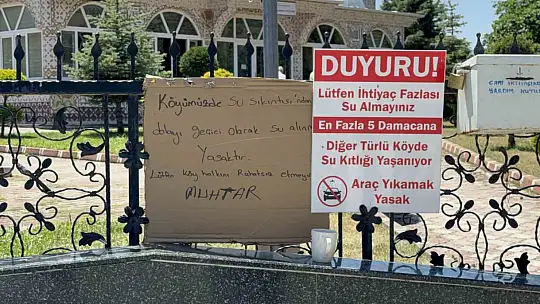 Köyümüzde Su Sıkıntısı'ndan
dolayı geçici olarak su alımı
Yasaktır.
Lütfen Köy halkını Rahatsız etmeyin
MUHTAR
DUYURU!
Lütfen İhtiyaç Fazlası
Su Almayınız
En Fazla 5 Damacana
Diğer Türlü Köyde
Su Kıtlığı Yaşanıyor
Araç Yıkamak
Yasak
YARDIM KUTUSU